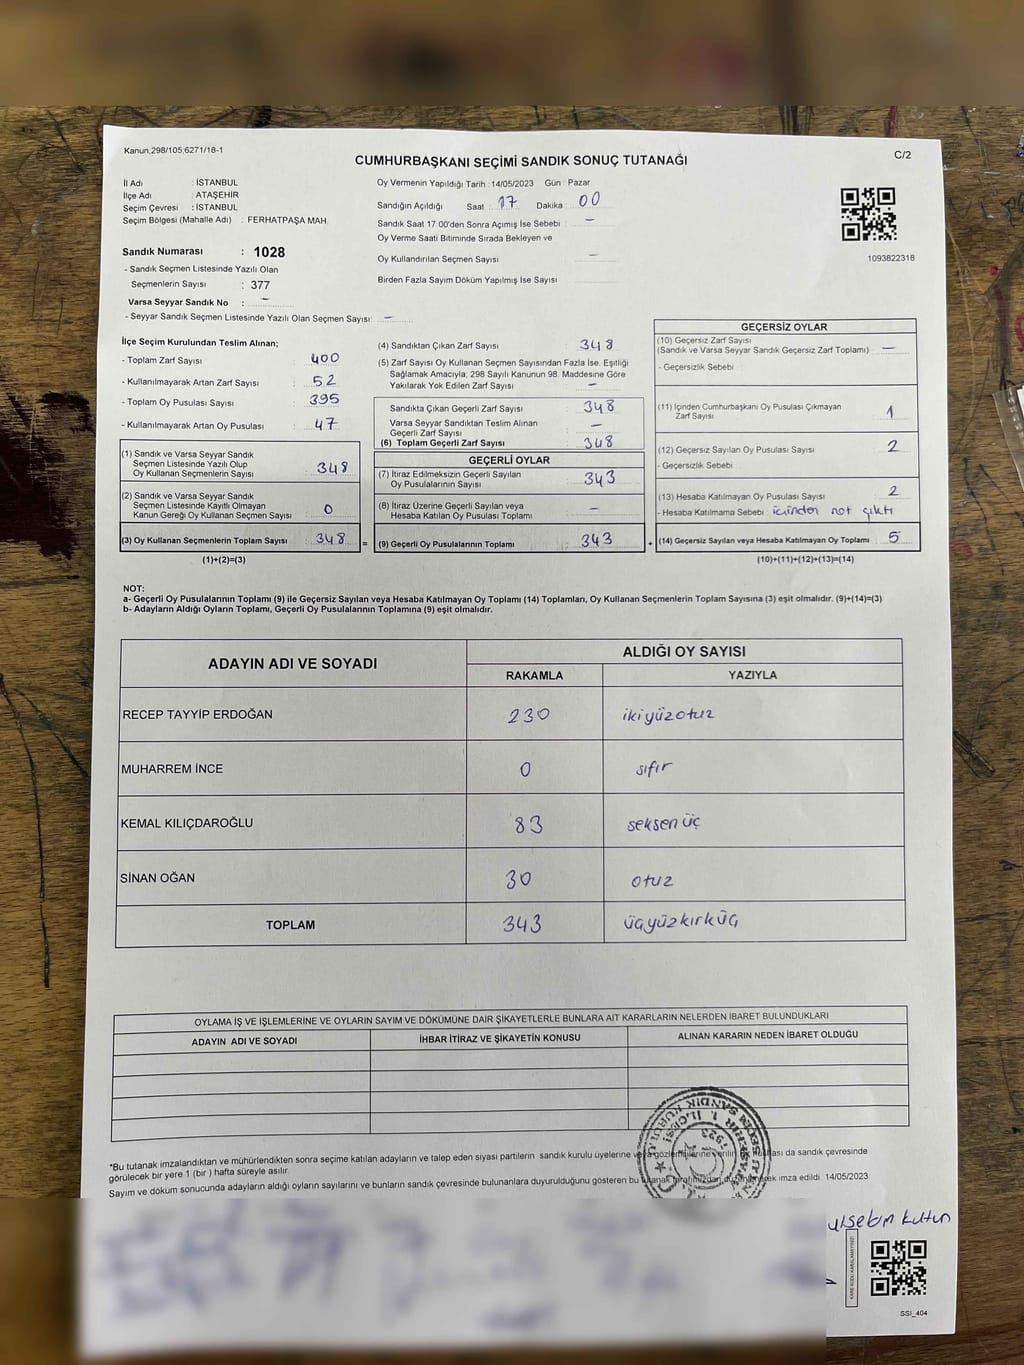 Kanun;298/105;6271/18-1
CUMHURBAŞKANI SEÇİMİ SANDIK SONUÇ TUTANAĞI
C/2
İl Adı : İSTANBUL
İlçe Adı : ATAŞEHİR
Seçim Çevresi : İSTANBUL
Seçim Bölgesi (Mahalle Adı) : FERHATPAŞA MAH.
Sandık Numarası : 1028
- Sandık Seçmen Listesinde Yazılı Olan
Seçmenlerin Sayısı : 377
Varsa Seyyar Sandık No : -
- Seyyar Sandık Seçmen Listesinde Yazılı Olan Seçmen Sayısı: -
Oy Vermenin Yapıldığı Tarih : 14/05/2023 Gün : Pazar
Sandığın Açıldığı Saat : 17 Dakika : 00
Sandık Saat 17.00'den Sonra Açımış İse Sebebi : -
Oy Verme Saati Bitiminde Sırada Bekleyen ve
Oy Kullandırılan Seçmen Sayısı : -
Birden Fazla Sayım Döküm Yapılmış İse Sayısı :
1093822318
İlçe Seçim Kurulundan Teslim Alınan;
- Toplam Zarf Sayısı : 400
- Kullanılmayarak Artan Zarf Sayısı : 52
- Toplam Oy Pusulası Sayısı : 395
- Kullanılmayarak Artan Oy Pusulası : 47
(1) Sandık ve Varsa Seyyar Sandık
Seçmen Listesinde Yazılı Olup
Oy Kullanan Seçmenlerin Sayısı : 348
(2) Sandık ve Varsa Seyyar Sandık
Seçmen Listesinde Kayıtlı Olmayan
Kanun Gereği Oy Kullanan Seçmen Sayısı : 0
(3) Oy Kullanan Seçmenlerin Toplam Sayısı : 348
(1)+(2)=(3)
=
(4) Sandıktan Çıkan Zarf Sayısı : 348
(5) Zarf Sayısı Oy Kullanan Seçmen Sayısından Fazla İse, Eşitliği
Sağlamak Amacıyla; 298 Sayılı Kanunun 98. Maddesine Göre
Yakılarak Yok Edilen Zarf Sayısı : -
Sandıkta Çıkan Geçerli Zarf Sayısı : 348
Varsa Seyyar Sandıktan Teslim Alınan
Geçerli Zarf Sayısı : -
(6) Toplam Geçerli Zarf Sayısı : 348
GEÇERLİ OYLAR
(7) İtiraz Edilmeksizin Geçerli Sayılan
Oy Pusulalarının Sayısı : 343
(8) İtiraz Üzerine Geçerli Sayılan veya
Hesaba Katılan Oy Pusulası Toplamı : -
(9) Geçerli Oy Pusulalarının Toplamı : 343
+
GEÇERSİZ OYLAR
(10) Geçersiz Zarf Sayısı
(Sandık ve Varsa Seyyar Sandık Geçersiz Zarf Toplamı) : -
- Geçersizlik Sebebi :
(11) İçinden Cumhurbaşkanı Oy Pusulası Çıkmayan
Zarf Sayısı : 1
(12) Geçersiz Sayılan Oy Pusulası Sayısı : 2
- Geçersizlik Sebebi :
(13) Hesaba Katılmayan Oy Pusulası Sayısı : 2
- Hesaba Katılmama Sebebi : içinden not çıktı
(14) Geçersiz Sayılan veya Hesaba Katılmayan Oy Toplamı : 5
(10)+(11)+(12)+(13)=(14)
NOT:
a- Geçerli Oy Pusulalarının Toplamı (9) ile Geçersiz Sayılan veya Hesaba Katılmayan Oy Toplamı (14) Toplamları, Oy Kullanan Seçmenlerin Toplam Sayısına (3) eşit olmalıdır. (9)+(14)=(3)
b- Adayların Aldığı Oyların Toplamı, Geçerli Oy Pusulalarının Toplamına (9) eşit olmalıdır.
ADAYIN ADI VE SOYADI
ALDIĞI OY SAYISI
RAKAMLA YAZIYLA
RECEP TAYYİP ERDOĞAN 230 ikiyüzotuz
MUHARREM İNCE 0 sıfır
KEMAL KILIÇDAROĞLU 83 seksen üç
SİNAN OĞAN 30 otuz
TOPLAM 343 üçyüzkırküç
OYLAMA İŞ VE İŞLEMLERİNE VE OYLARIN SAYIM VE DÖKÜMÜNE DAİR ŞİKAYETLERLE BUNLARA AİT KARARLARIN NELERDEN İBARET BULUNDUKLARI
ADAYIN ADI VE SOYADI İHBAR İTİRAZ VE ŞİKAYETİN KONUSU ALINAN KARARIN NEDEN İBARET OLDUĞU
*Bu tutanak imzalandıktan ve mühürlendikten sonra seçime katılan adayların ve talep eden siyasi partilerin sandık kurulu üyelerine veya gözlemcilerine verilir. da sandık çevresinde
görülecek bir yere 1 (bir ) hafta süreyle asılır.
Sayım ve döküm sonucunda adayların aldığı oyların sayılarını ve bunların sandık çevresinde bulunanlara duyurulduğunu gösteren bu tutanak tarafımızdan düzenlenerek imza edildi. 14/05/2023
SSİ_404